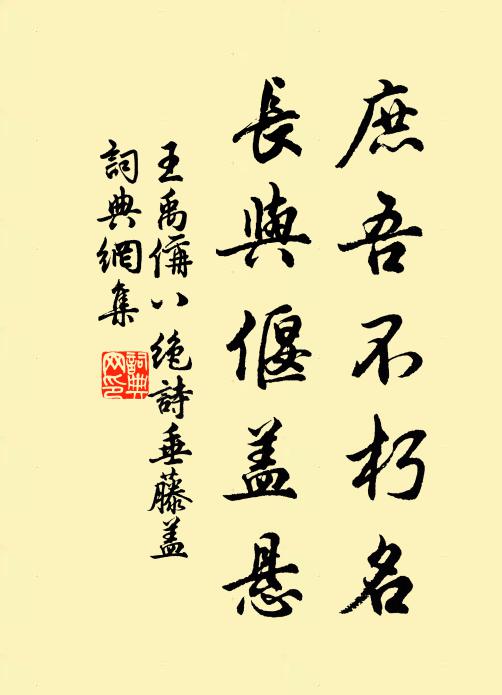 庶吾不朽名
長與偃盖悬
王禹偁八絶詩垂藤盖
詞典網集
詞典网印